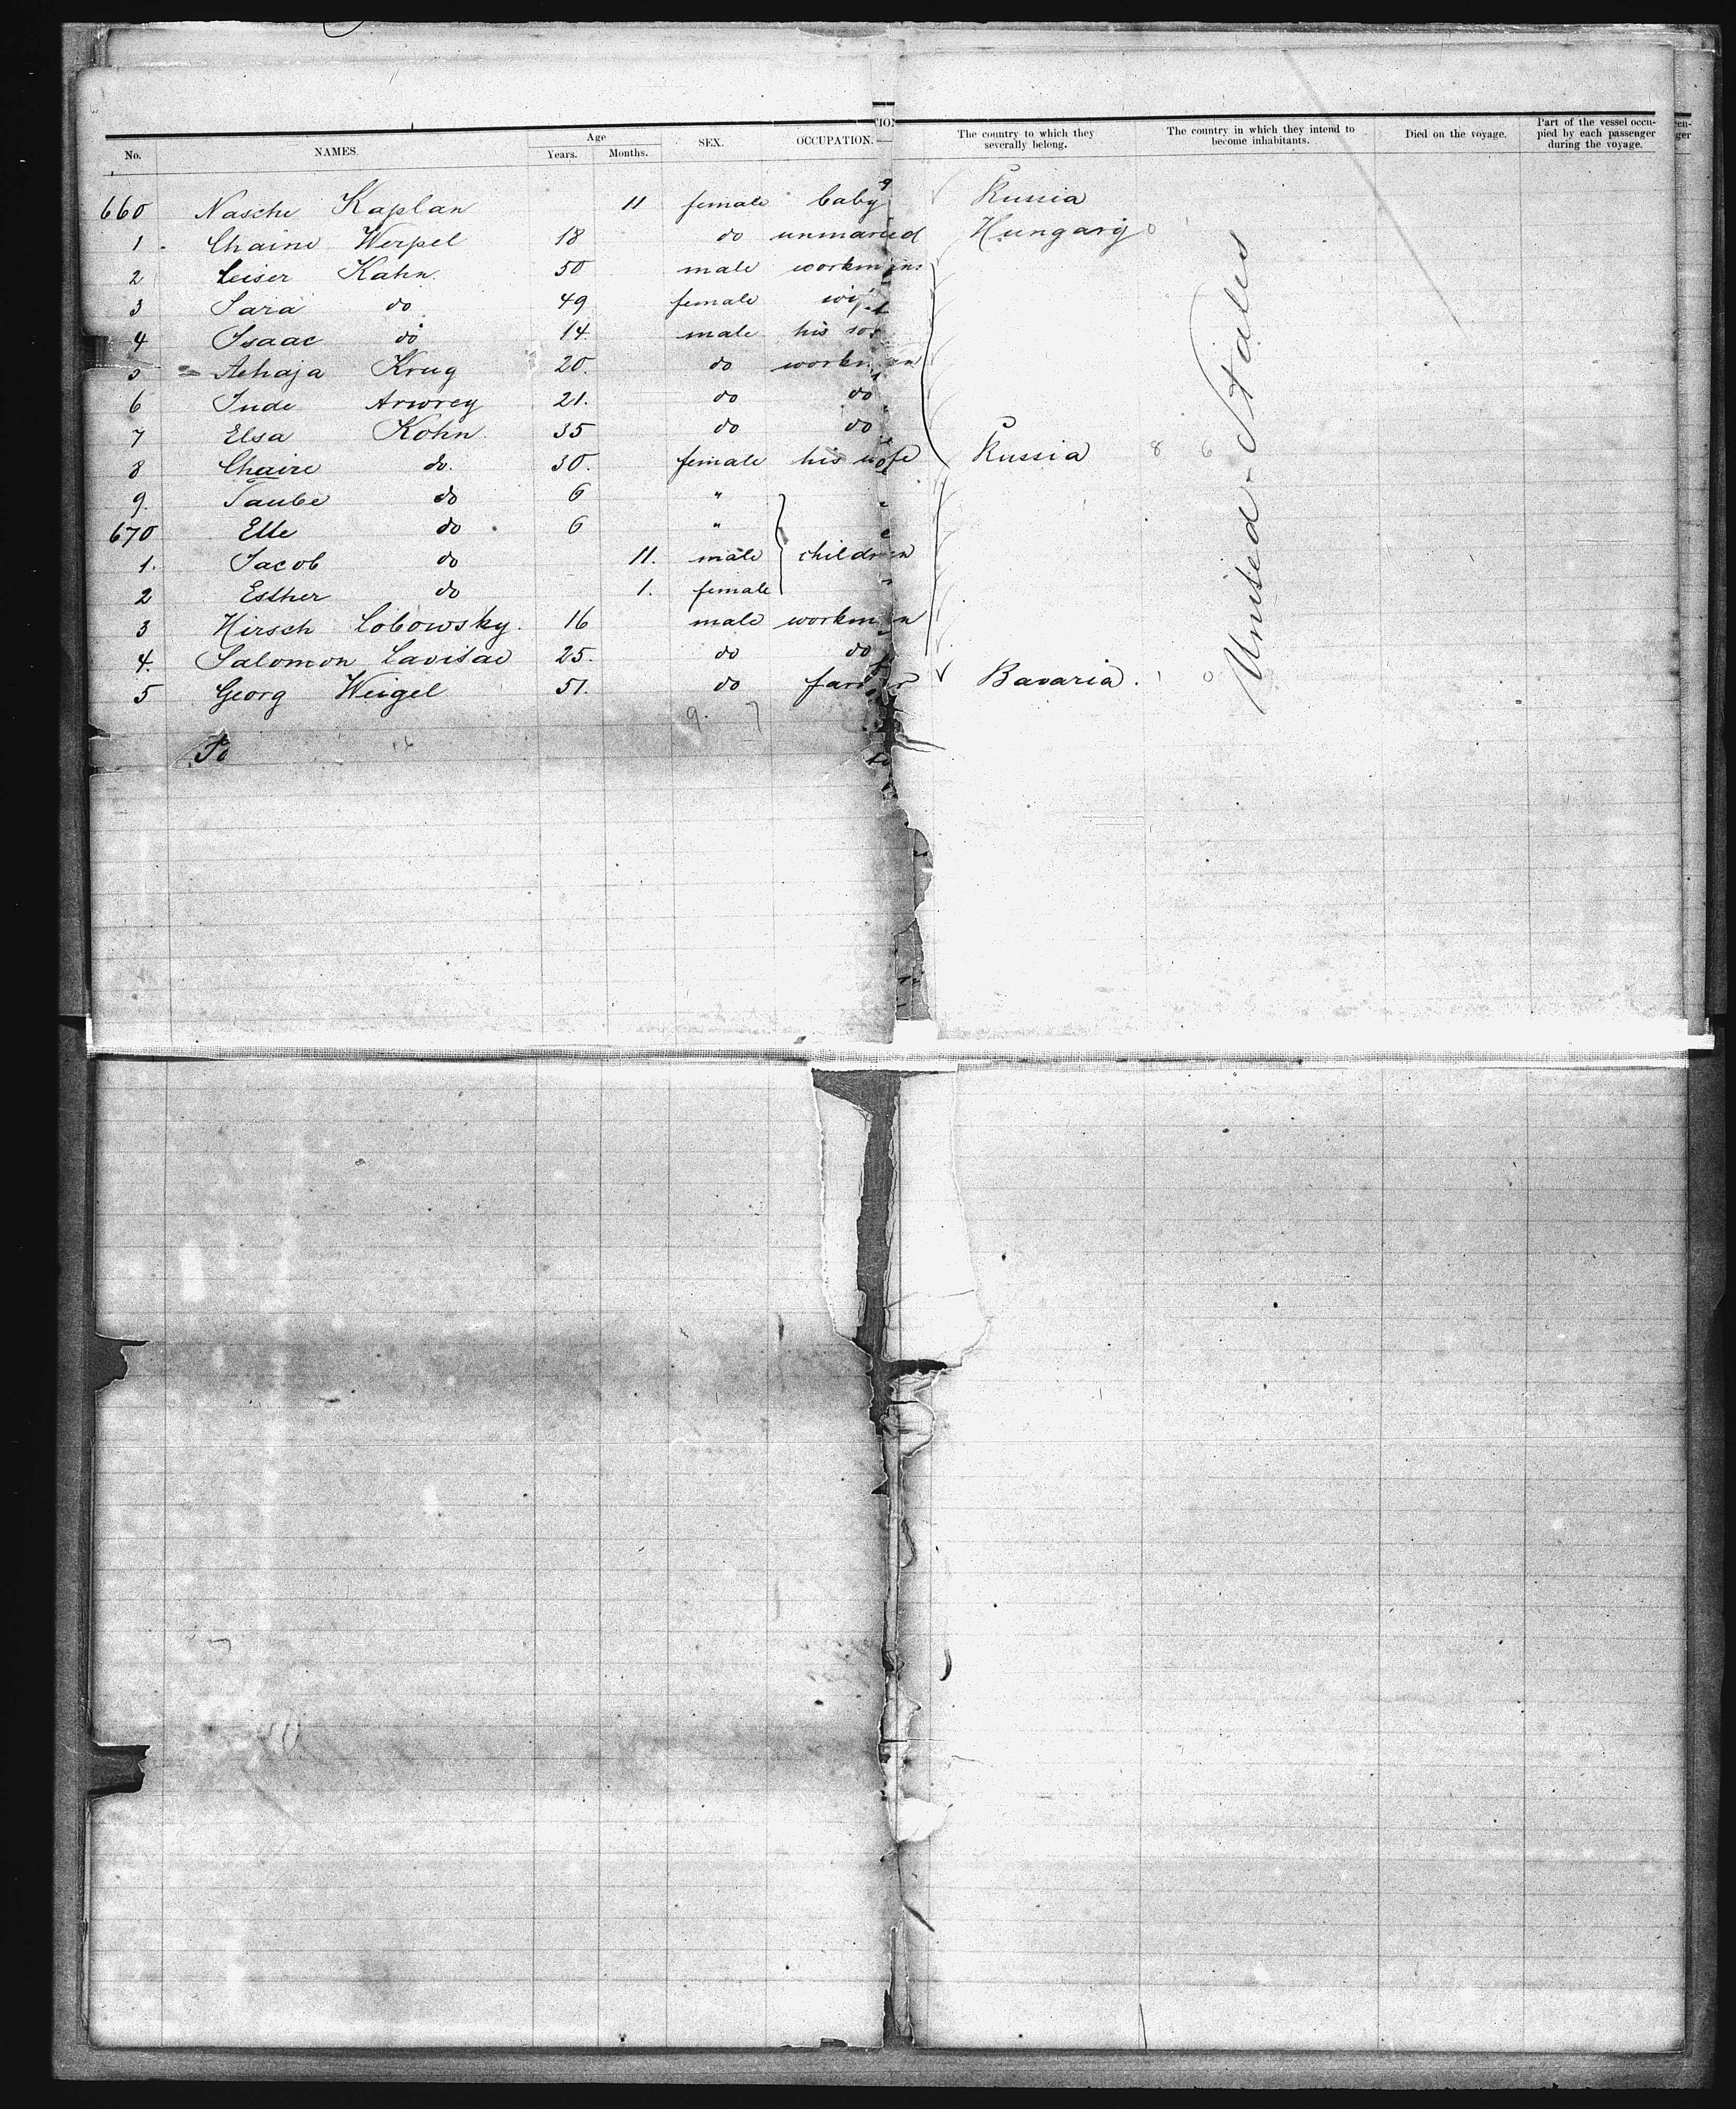 No. NAMES. Age Years. Months. SEX. OCCUPATION. The country to which they severally belong. The country in which they intend to become inhabitants. Died on the voyage. Part of the vessel occupied by each passenger during the voyage.
660 Nasche Kaplan 11 female baby Russia
1 Chaine Werpel 18 do unmarried Hungary
2 Leiser Kahn 50 male workman
3 Sara do 49 female wife
4 Isaac do 14 male his son
5 Krug 20. do workman
6 Jude 21. do do
7 Elsa Kohn 35 do do
8 Chaire do. 30. female his wife Russia 8 6
9. Taube do 6 "
670 Elle do 6 "
1. Jacob do 11. male children
2 Esther do 1. female
3 Hirsch Lobowsky. 16 male workman
4. Salomon 25. do do
5 Georg Weigel 51. do farmer Bavaria. 1 0
United States
9. 7